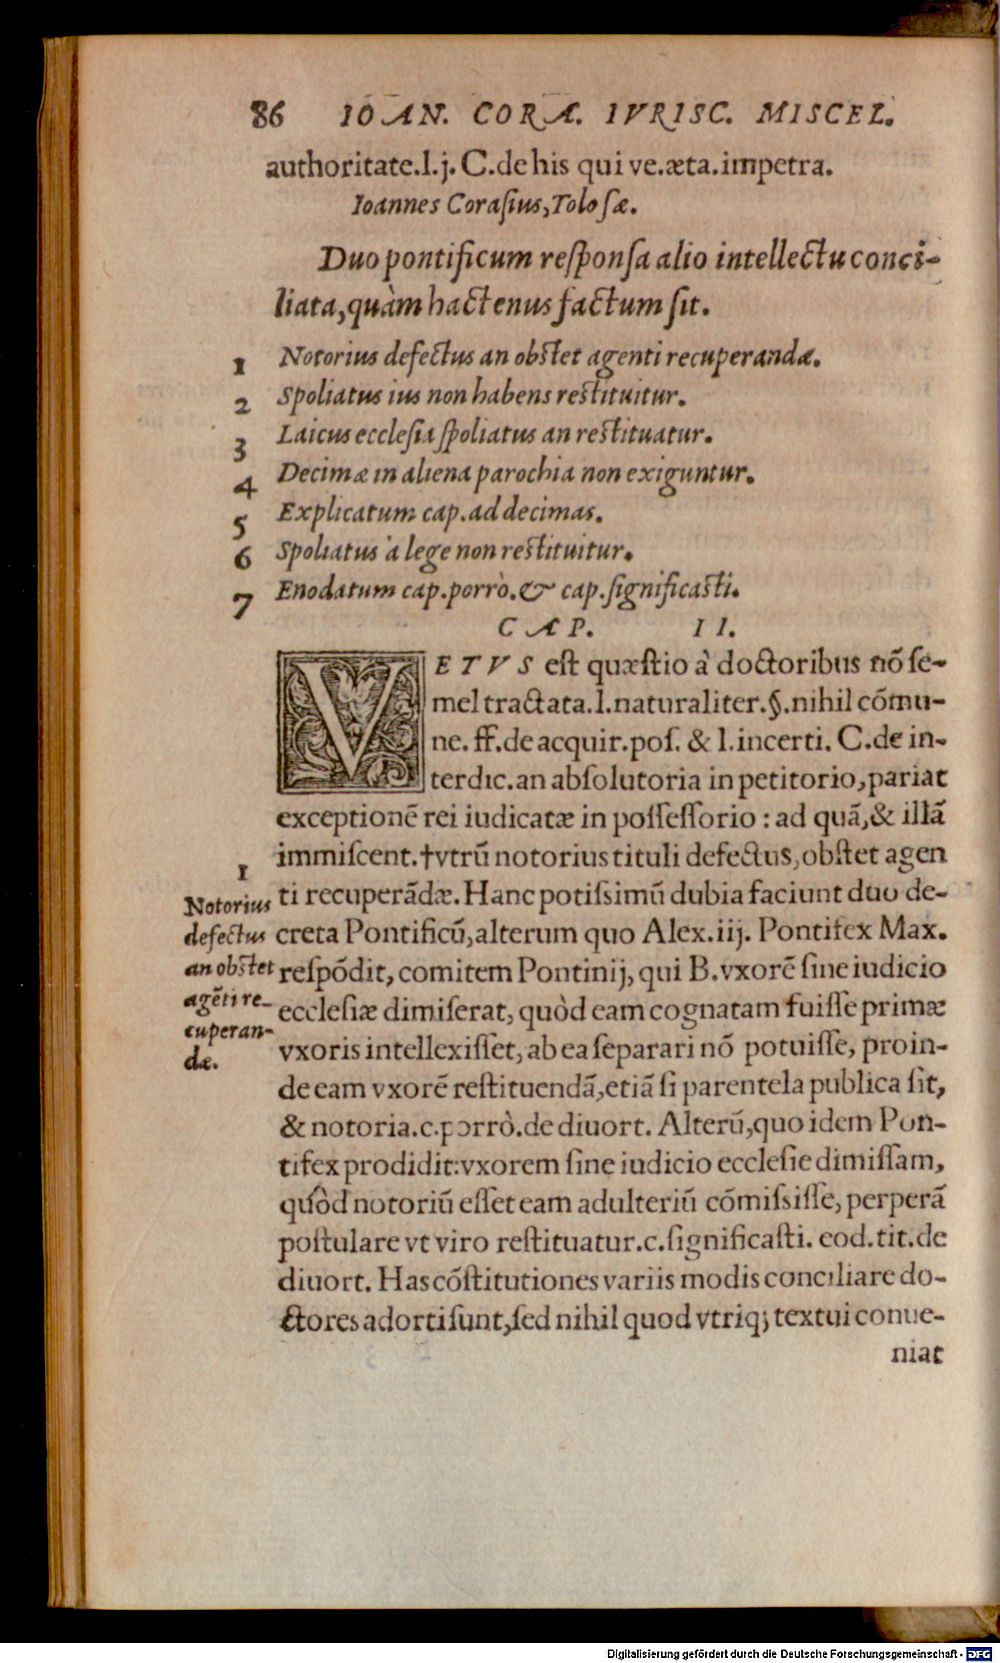 86 IOAN. CORA. IVRISC. MISCEL.
authoritate.l.j. C.de his qui ve.æta.impetra.
Ioannes Corasius,Tolosæ.
Duo pontificum responsa alio intellectu conci-
liata,quàm hactenus factum sit.
1 Notorius defectus an obstet agenti recuperandæ.
2 Spoliatus ius non habens restituitur.
3 Laicus ecclesia spoliatus an restituatur.
4 Decimæ in aliena parochia non exiguntur.
5 Explicatum cap.ad decimas.
6 Spoliatus à lege non restituitur.
7 Enodatum cap.porrò.& cap.significasti.
CAP. II.
VETVS est quæstio à doctoribus nō se-
mel tractata.l.naturaliter.§.nihil cōmu-
ne.ff.de acquir.pos. & l.incerti. C.de in-
terdic.an absolutoria in petitorio,pariat
exceptionē rei iudicatæ in possessorio : ad quā,& illā
immiscent.†vtrū notorius tituli defectus,obstet agen
ti recuperādæ. Hanc potissimū dubia faciunt duo de-
creta Pontificū,alterum quo Alex.iij. Pontifex Max.
respōdit, comitem Pontinij, qui B.vxorē sine iudicio
ecclesiæ dimiserat, quòd eam cognatam fuisse primæ
vxoris intellexisset, ab ea separari nō potuisse, proin-
de eam vxorē restituendā,etiā si parentela publica sit,
& notoria.c.porrò.de diuort. Alterū,quo idem Pon-
tifex prodidit:vxorem sine iudicio ecclesie dimissam,
quòd notoriū esset eam adulteriū cōmisisse, perperā
postulare vt viro restituatur.c.significasti. eod.tit.de
diuort. Has cōstitutiones variis modis conciliare do-
ctores adorti sunt,sed nihil quod vtriq; textui conue-
niat
1
Notorius
defectus
an obstet
agēti re-
cuperan-
dæ.
Digitalisierung gefördert durch die Deutsche Forschungsgemeinschaft - DFG